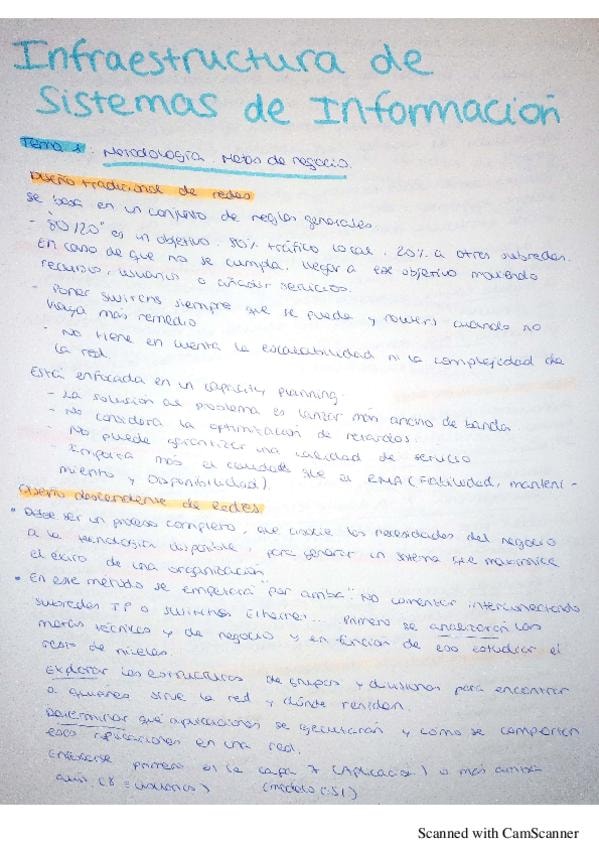 Infraestructura de
Sistemas de Información
Tema 1: Metodología. Metas de negocio.
Diseño tradicional de redes
se basa en un conjunto de reglas generales.
- "80/20" es un objetivo. 80% tráfico local, 20% a otras subredes.
En caso de que no se cumpla, llegar a ese objetivo moviendo
recursos, usuarios o añadir servicios.
- Poner switches siempre que se pueda y routers cuando no
haya más remedio
- No tiene en cuenta la escalabilidad ni la complejidad de
la red.
Está enfocada en un capacity planning.
- La solución al problema es lanzar más ancho de banda
- No considera la optimización de retardos.
- No puede garantizar una calidad de servicio
- Importa más el caudal que el RMA (Fiabilidad, manteni-
miento y Disponibilidad).
Diseño descendente de Redes
• Debe ser un proceso completo, que asocie las necesidades del negocio
a la tecnología disponible, para generar un sistema que maximice
el éxito de una organización
• En ese método se empezará "por arriba". No comenzar interconectando
subredes IP o switches Ethernet... Primero se analizarán las
metas técnicas y de negocio y en función de eso estudiar el
resto de niveles.
Explorar las estructuras de grupos y divisiones para encontrar
a quienes sirve la red y dónde residen.
Determinar qué aplicaciones se ejecutarán y cómo se comportan
esas aplicaciones en una red.
Enfocarse primero en la capa 7 (Aplicación) o más arriba
aún. (8 = usuarios) (modelo OSI)
Scanned with CamScanner